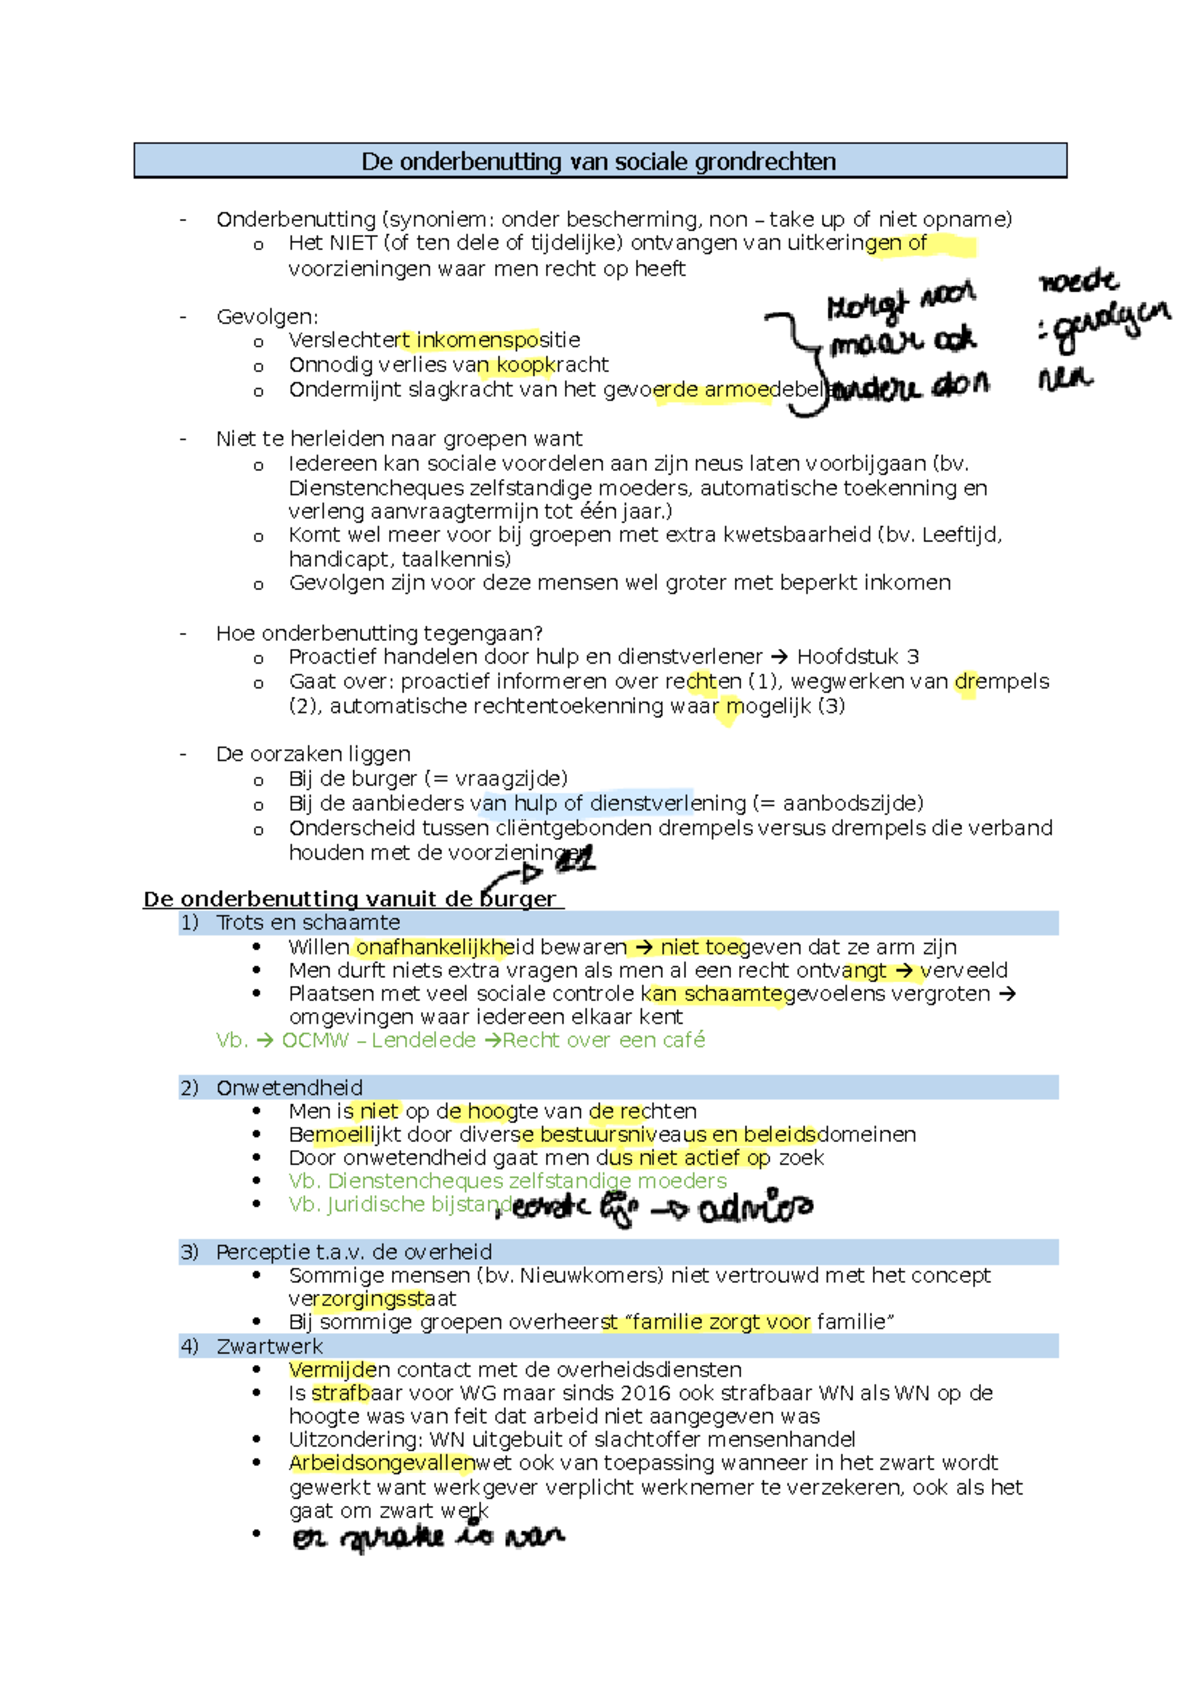 De onderbenutting van sociale grondrechten
- Onderbenutting (synoniem: onder bescherming, non – take up of niet opname)
o Het NIET (of ten dele of tijdelijke) ontvangen van uitkeringen of
voorzieningen waar men recht op heeft
- Gevolgen:
o Verslechtert inkomenspositie
o Onnodig verlies van koopkracht
o Ondermijnt slagkracht van het gevoerde armoedebelei
zorgt voor
maar ook : gevolgen
andere
- Niet te herleiden naar groepen want
o Iedereen kan sociale voordelen aan zijn neus laten voorbijgaan (bv.
Dienstencheques zelfstandige moeders, automatische toekenning en
verleng aanvraagtermijn tot één jaar.)
o Komt wel meer voor bij groepen met extra kwetsbaarheid (bv. Leeftijd,
handicapt, taalkennis)
o Gevolgen zijn voor deze mensen wel groter met beperkt inkomen
- Hoe onderbenutting tegengaan?
o Proactief handelen door hulp en dienstverlener → Hoofdstuk 3
o Gaat over: proactief informeren over rechten (1), wegwerken van drempels
(2), automatische rechtentoekenning waar mogelijk (3)
- De oorzaken liggen
o Bij de burger (= vraagzijde)
o Bij de aanbieders van hulp of dienstverlening (= aanbodszijde)
o Onderscheid tussen cliëntgebonden drempels versus drempels die verband
houden met de voorzieningen
11
De onderbenutting vanuit de burger
1) Trots en schaamte
• Willen onafhankelijkheid bewaren → niet toegeven dat ze arm zijn
• Men durft niets extra vragen als men al een recht ontvangt → verveeld
• Plaatsen met veel sociale controle kan schaamtegevoelens vergroten →
omgevingen waar iedereen elkaar kent
Vb. → OCMW – Lendelede →Recht over een café
2) Onwetendheid
• Men is niet op de hoogte van de rechten
• Bemoeilijkt door diverse bestuursniveaus en beleidsdomeinen
• Door onwetendheid gaat men dus niet actief op zoek
• Vb. Dienstencheques zelfstandige moeders
• Vb. Juridische bijstand, eerste lijn → advies
3) Perceptie t.a.v. de overheid
• Sommige mensen (bv. Nieuwkomers) niet vertrouwd met het concept
verzorgingsstaat
• Bij sommige groepen overheerst “familie zorgt voor familie”
4) Zwartwerk
• Vermijden contact met de overheidsdiensten
• Is strafbaar voor WG maar sinds 2016 ook strafbaar WN als WN op de
hoogte was van feit dat arbeid niet aangegeven was
• Uitzondering: WN uitgebuit of slachtoffer mensenhandel
• Arbeidsongevallenwet ook van toepassing wanneer in het zwart wordt
gewerkt want werkgever verplicht werknemer te verzekeren, ook als het
gaat om zwart werk
• er sprake is van